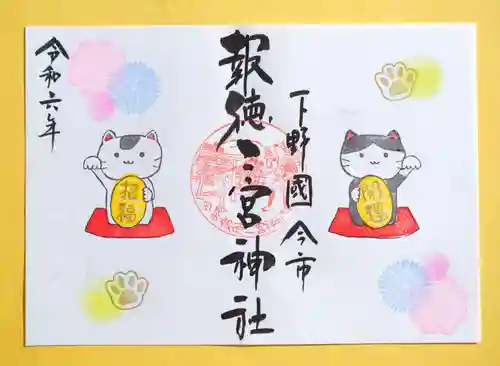 報徳二宮神社
下野國今市
令和六年
招福
開運